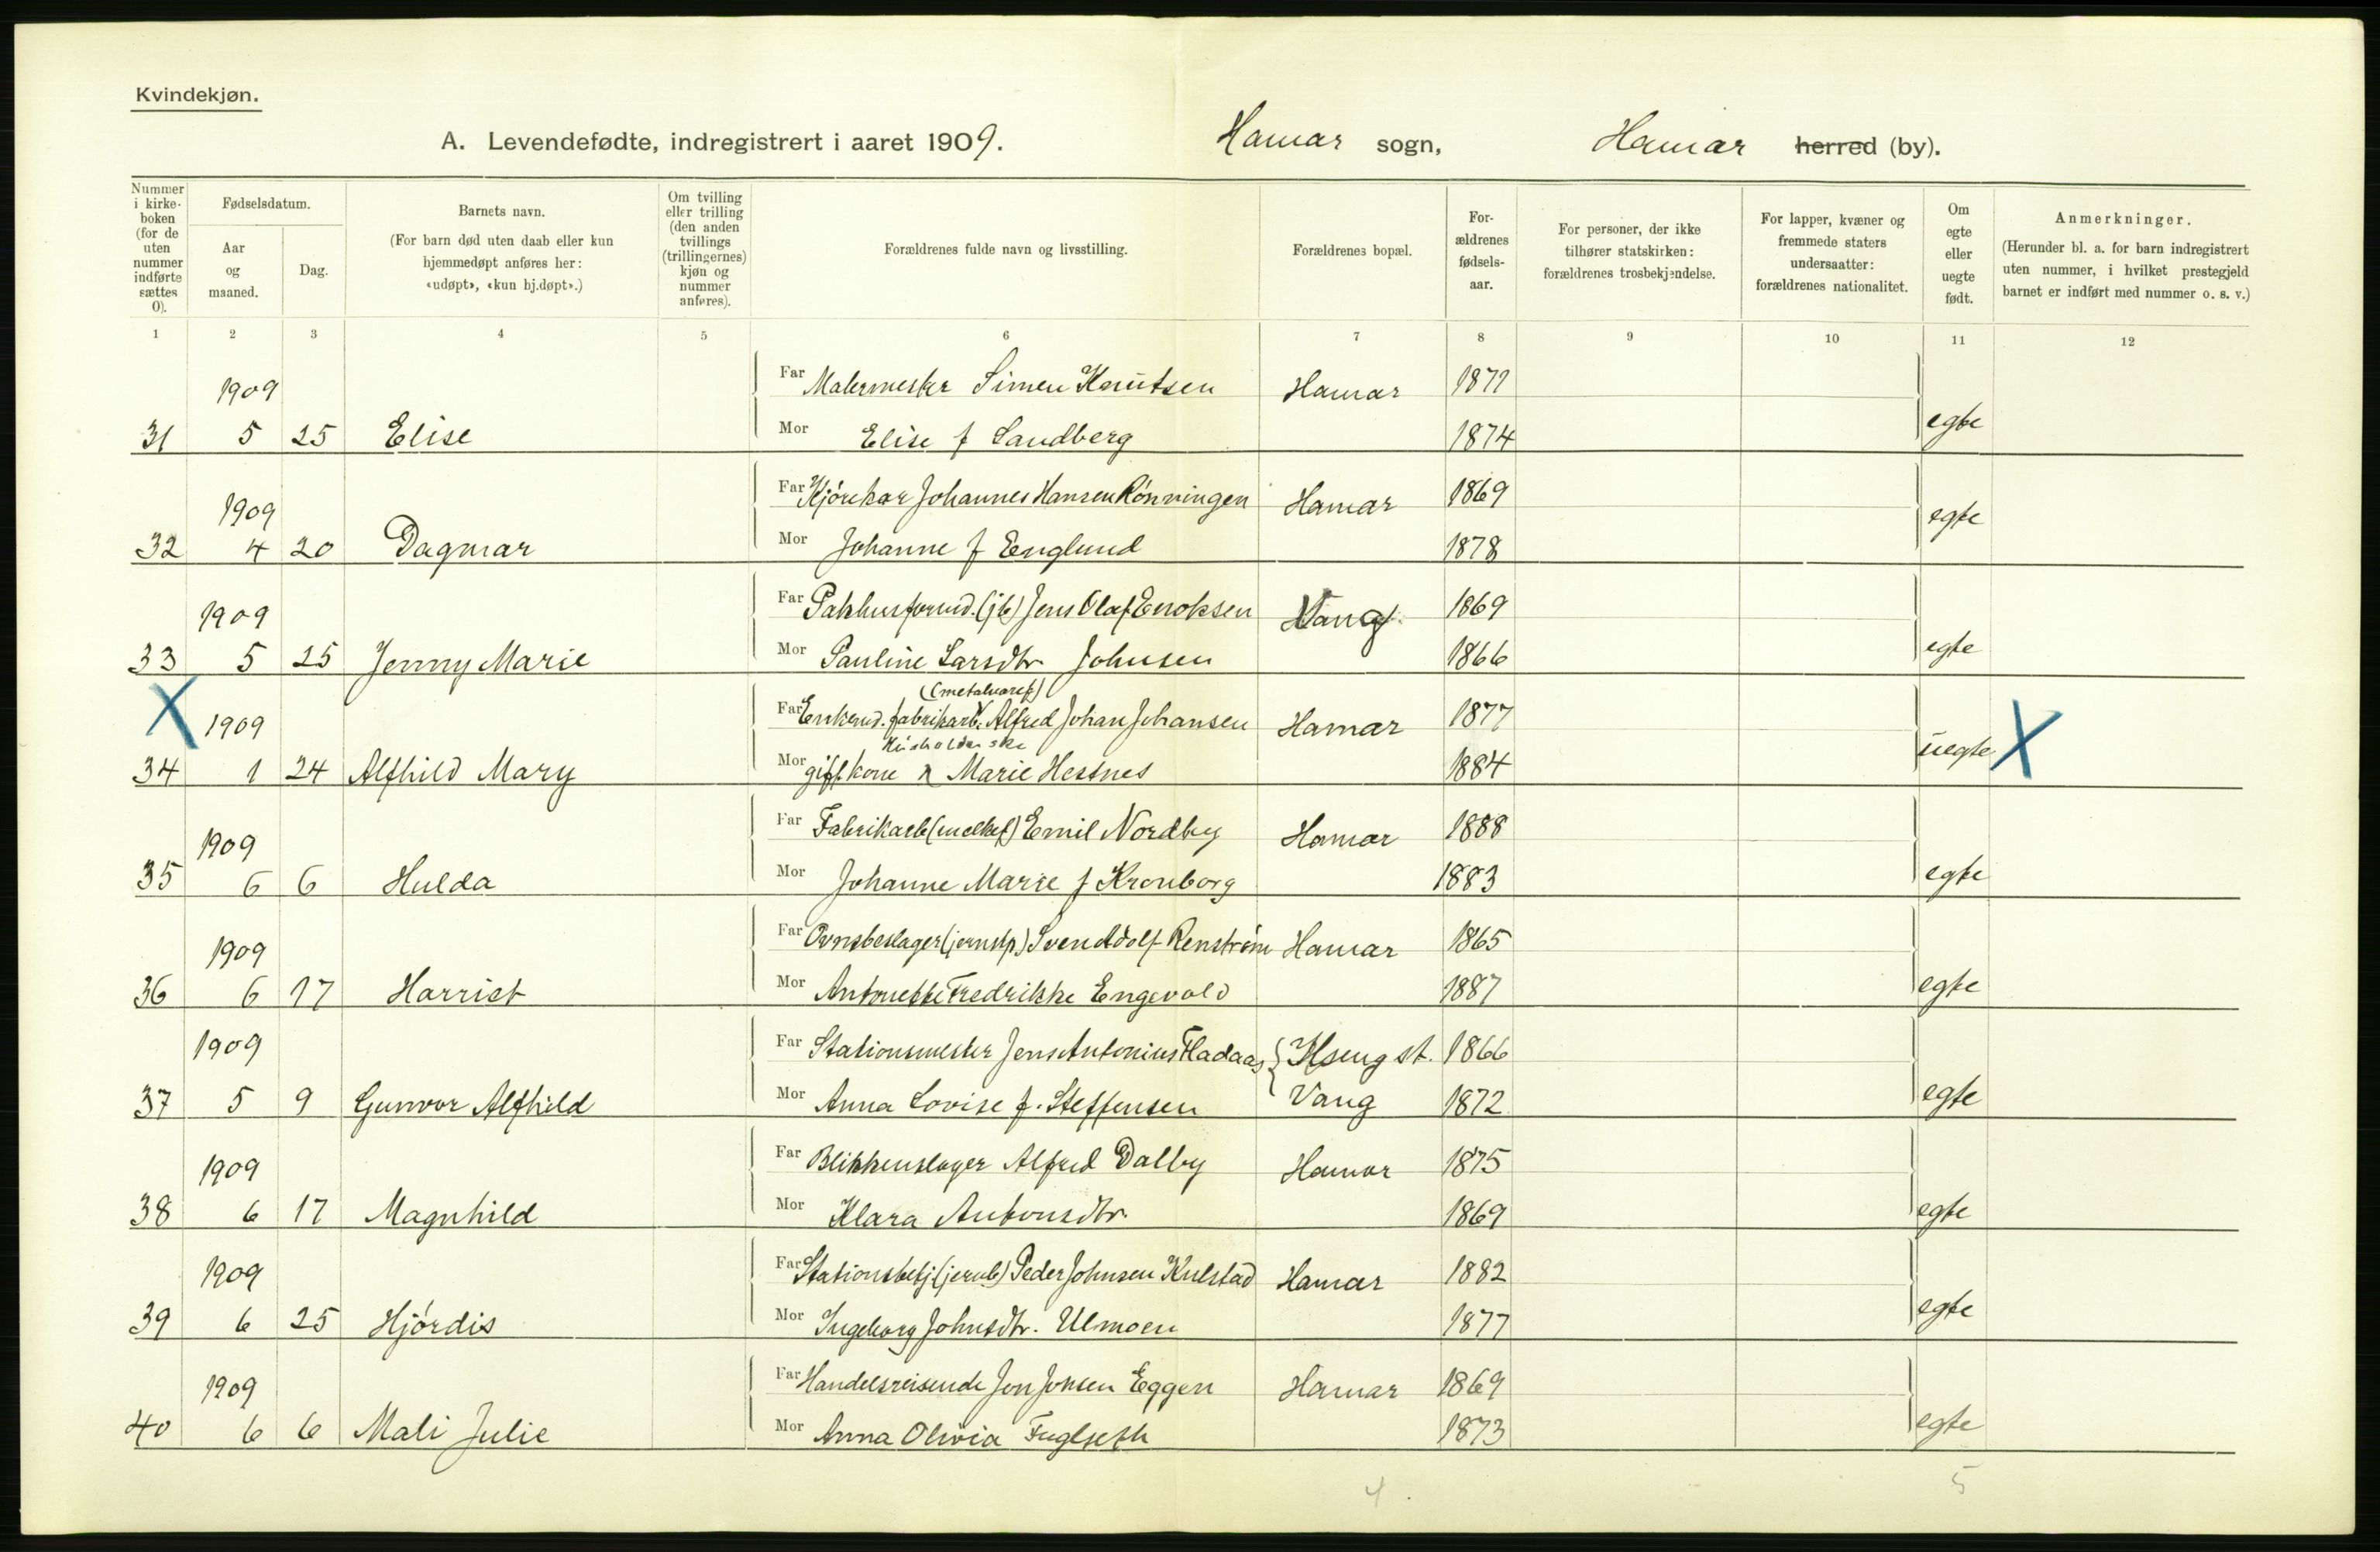 Kvindekjøn.
A. Levendefødte, indregistrert i aaret 1909. Hamar sogn, Hamar herred (by).
Nummer i kirkeboken (for de uten nummer indførte sættes 0).
Fødselsdatum.
Aar og maaned.
Dag.
Barnets navn.
(For barn død uten daab eller kun hjemmedøpt anføres her: «udøpt», «kun hj.døpt».)
Om tvilling eller trilling (den anden tvillings (trillingernes) kjøn og nummer anføres).
Forældrenes fulde navn og livsstilling.
Forældrenes bopæl.
Forældrenes fødselsaar.
For personer, der ikke tilhører statskirken: forældrenes trosbekjendelse.
For lapper, kvæner og fremmede staters undersaatter: forældrenes nationalitet.
Om egte eller uegte født.
Anmerkninger.
(Herunder bl. a. for barn indregistrert uten nummer, i hvilket prestegjeld barnet er indført med nummer o. s. v.)
1 2 3 4 5 6 7 8 9 10 11 12
1909 Far Malermester Simen Knutsen Hamar 1871
31 5 25 Elise Mor Elise f Sandberg 1874 egte
1909 Far Kjørekar Johannes Hansen Rønningen Hamar 1869
32 4 20 Dagmar Mor Johanne f Englund 1878 egte
1909 Far Pakhusformd. (jb) Jens Olaf Enoksen Vang 1869
33 5 25 Jenny Marie Mor Pauline Larsdtr. Johnsen 1866 egte
(metalvaref)
X 1909 Far Enkemd. fabrikarb. Alfred Johan Johansen Hamar 1877
Husholderske
34 1 24 Alfhild Mary Mor gift kone Marie Hestnes 1884 uegte X
1909 Far Fabrikarb (melkef) Emil Nordby Hamar 1888
35 6 6 Hulda Mor Johanne Marie f Kronborg 1883 egte
1909 Far Ovnsbeslager (jernstp.) Svend Adolf Renstrøm Hamar 1865
36 6 17 Harriet Mor Antonette Fredrikke Engevold 1887 egte
1909 Far Stationsmester Jens Antonius Fladaas Ilseng st. 1866
37 5 9 Gunvor Alfhild Mor Anna Lovise f. Steffensen Vang 1872 egte
1909 Far Blikkenslager Alfred Dalby Hamar 1875
38 6 17 Magnhild Mor Klara Antonsdtr. 1869 egte
1909 Far Stationsbetj (jernb) Peder Johnsen Kulstad Hamar 1882
39 6 25 Hjørdis Mor Ingeborg Johnsdtr. Ulmoen 1877 egte
1909 Far Handelsreisende Jon Jonsen Eggen Hamar 1869
40 6 6 Mali Julie Mor Anna Olivia Fuglseth 1873 egte
4. 5